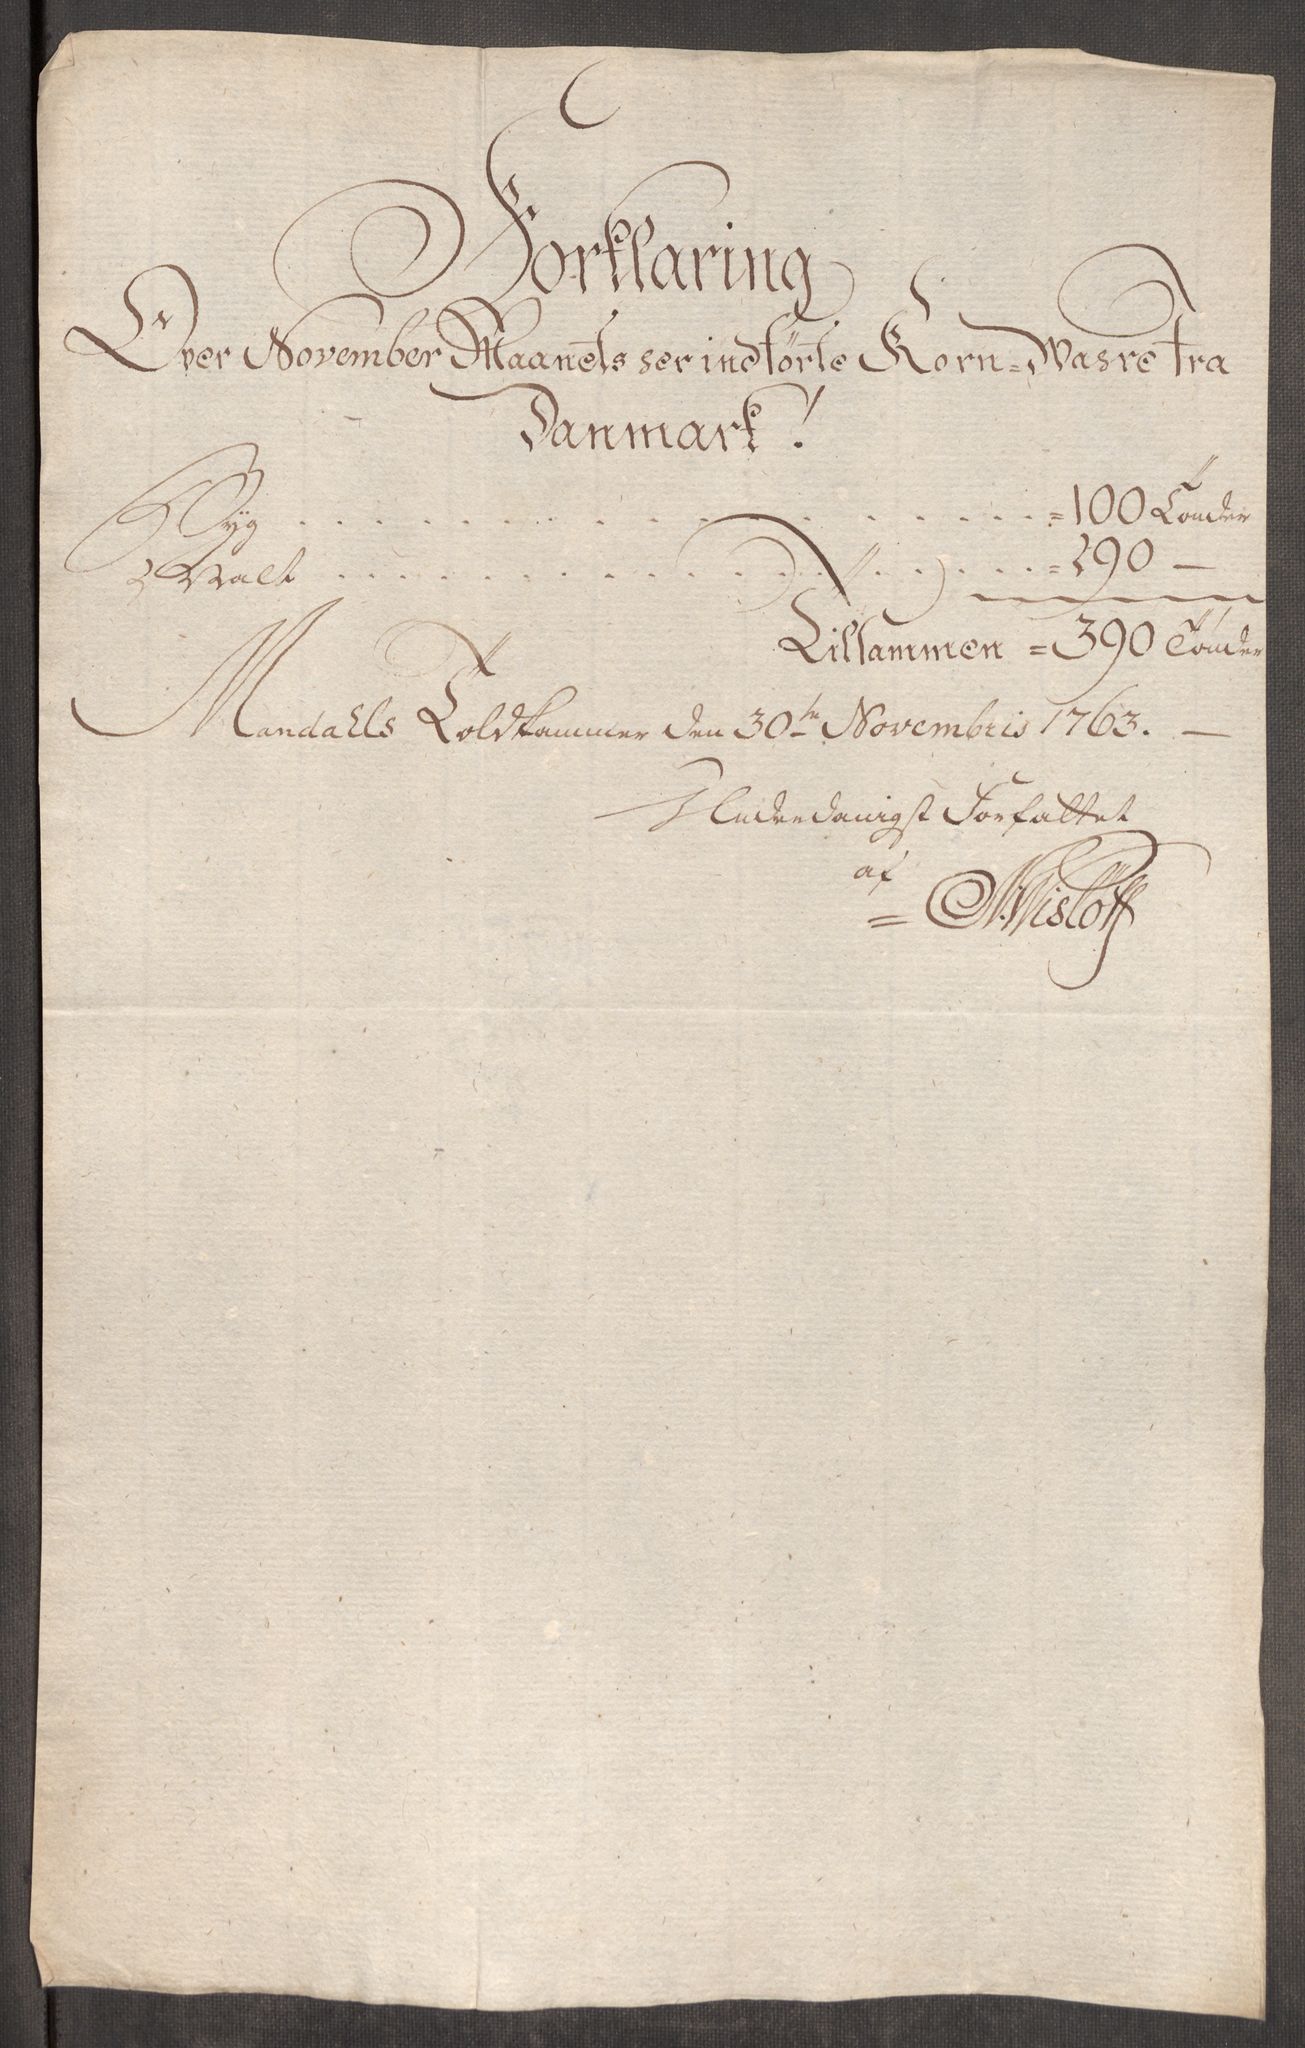 Forklaring
Over November Maaneds her indførte Korn-Vahre fra
Danmark!
Byg . . . . . . . . . . . . . . . . . . = 100 Tønder
Malt . . . . . . . . . . . . . . . . = 290 —
Tilsammen = 390 Tønder
Mandahls Toldkammer den 30te Novembris 1763. —
Underdanigst Forfattet
af
= N. Wisløff